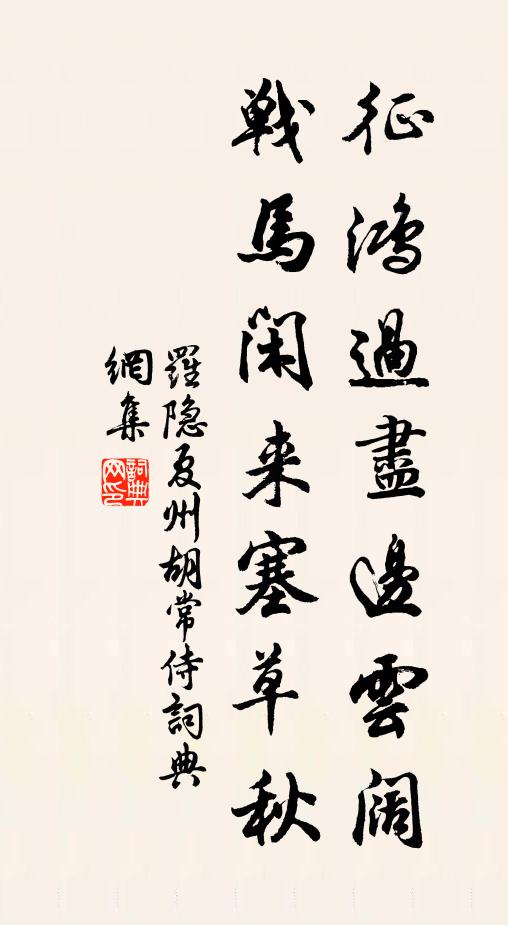 征鴻過盡邊雲闊
戰馬閑来塞草秋
羅隐夏州胡常侍詞典
網集
詞典网印